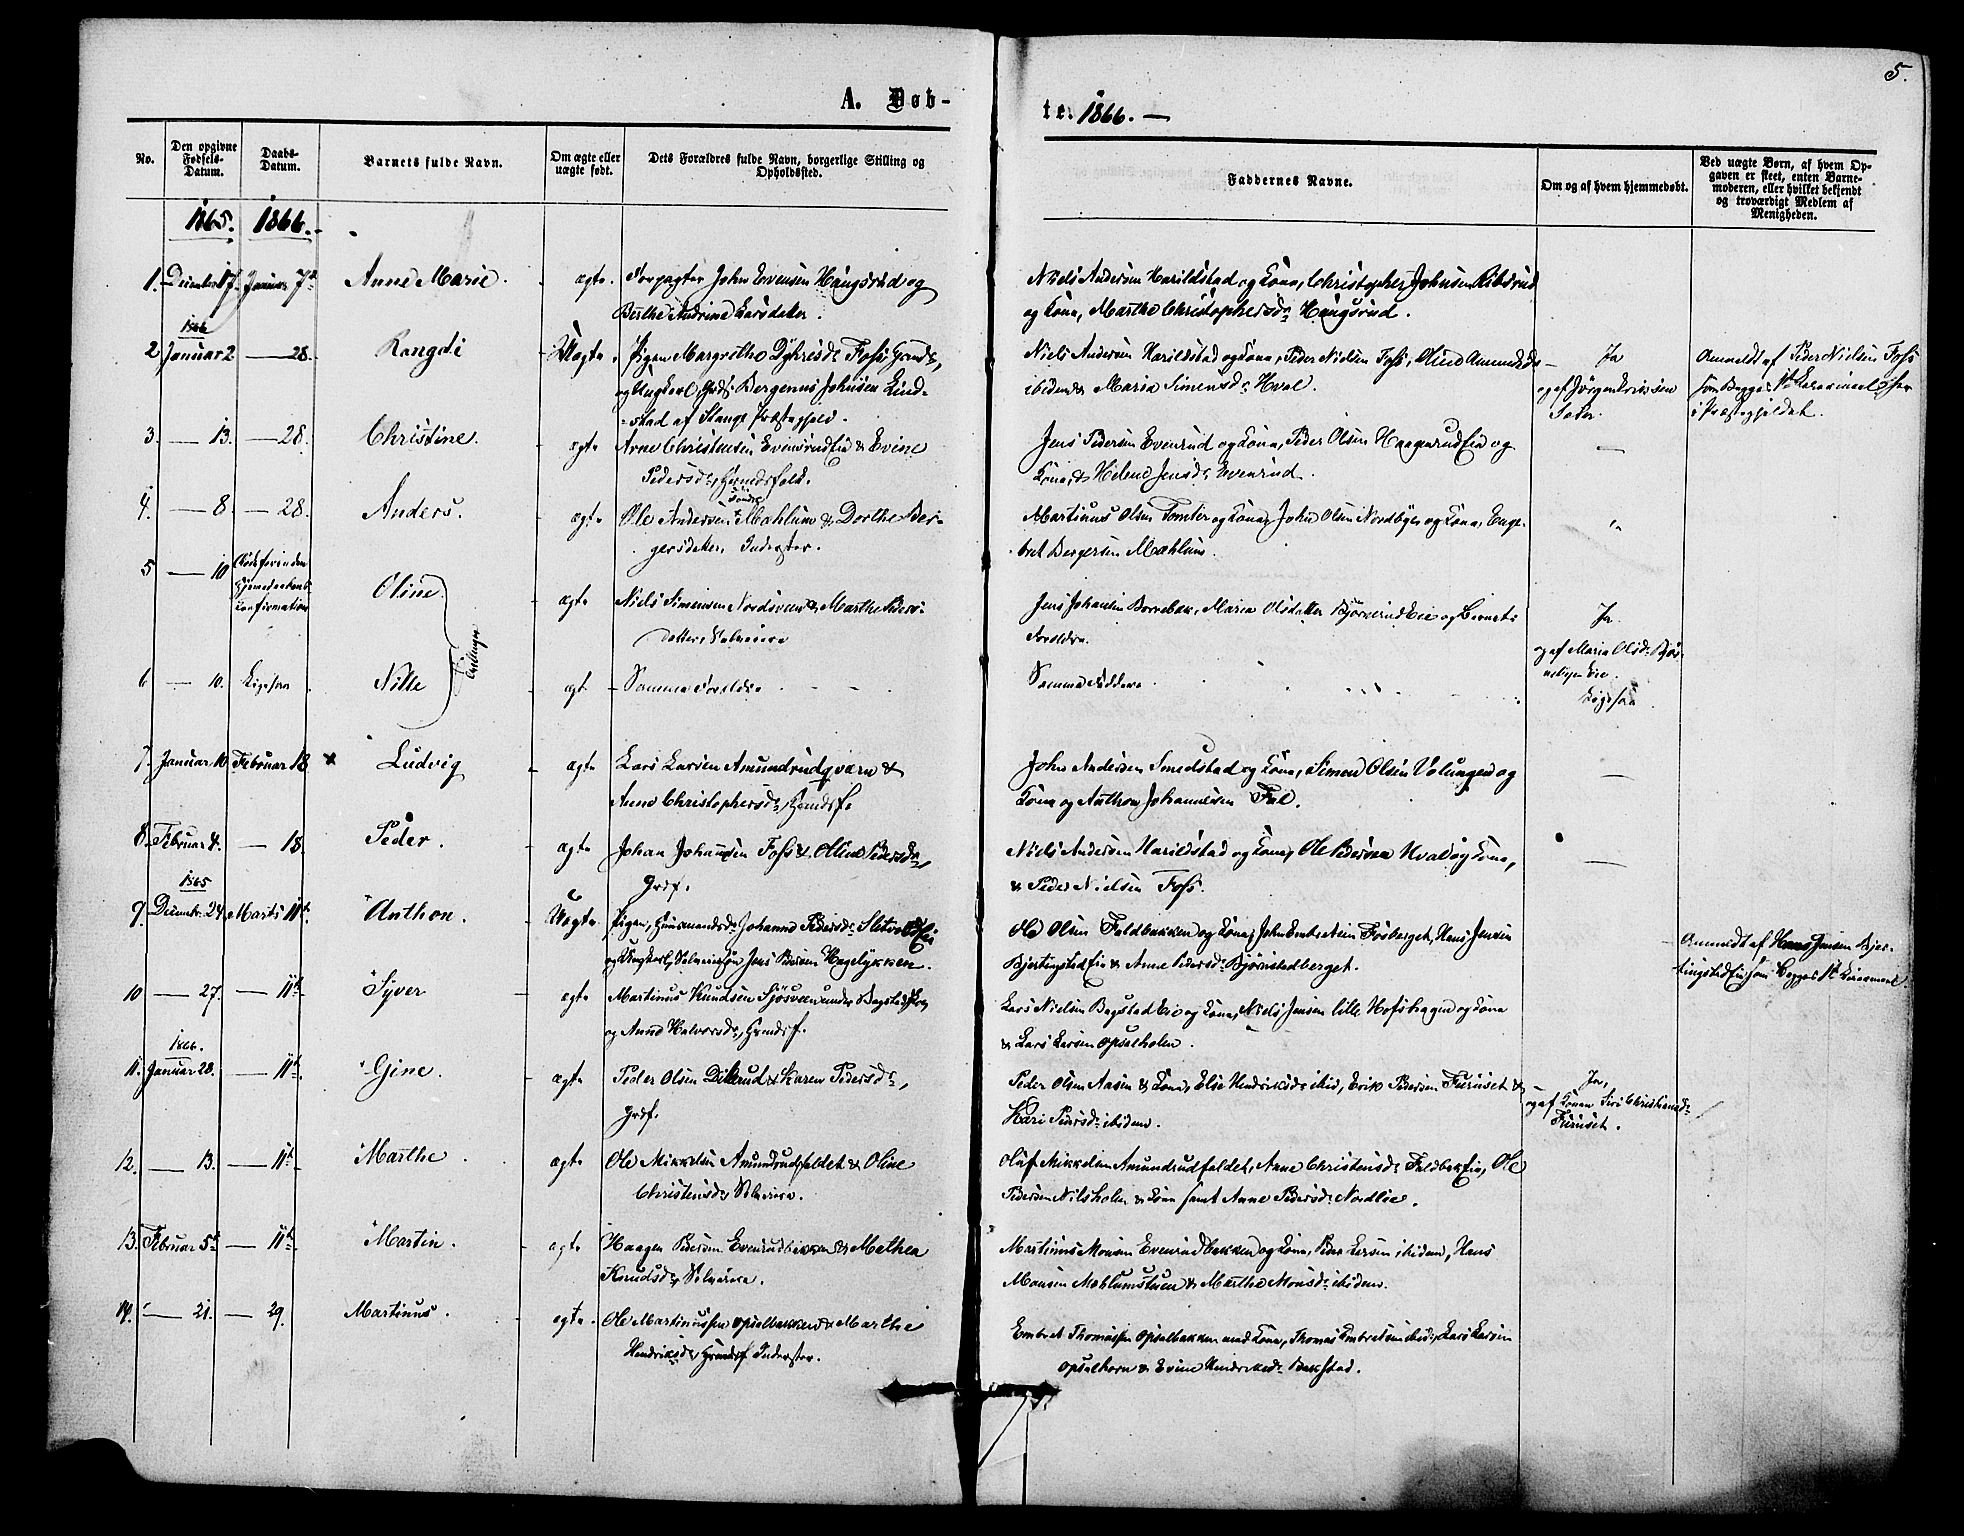 5.
A. Døb-
te. 1866. —
No.
Den opgivne
Fødsels-
Datum.
Daabs-
Datum.
Barnets fulde Navn.
Om ægte eller
uægte født.
Dets Forældres fulde Navn, borgerlige Stilling og
Opholdssted.
Faddernes Navne.
Om og af hvem hjemmedøbt.
Ved uægte Børn, af hvem Op-
gaven er skeet, enten Barne-
moderen, eller hvilket bekjendt
og troværdigt Medlem af
Menigheden.
1865. 1866.
1. December 17. Januar 7de Anne Marie. ægte. Forpagter John Evensen Haugsrud og
Berthe Andrine Larsdatter.
Niels Andersen Harildstad og Kone, Christopher Johnsen
og Kone, Marthe Christophersdr Haugsrud.
1866
2. Januar 2 — 28. Rangdi Uægte. Pigen Margrethe Foss,
og Ungkarl Bergenus Johnsen Lind-
stad af Stange Præstegjeld.
Niels Andersen Harildstad og Kone, Peder Nielsen Foss,
ibidem & Maria Simensdr Hval.
Ja
og af Jørgen Eriksen
Anmeldt af Peder Nielsen Foss
i Præstegjeldet.
3. — 13. — 28. Christine. ægte Arne Christensen Evensrudeie & Evine
Pedersdr,
Jens Pedersen Evenrud og Kone, Peder Olsen og
Kone, & Helene Jensdr Evenrud.
—
4. — 8. — 28. Anders. ægte Ole Andersen Søndre Mæhlum & Dorthe Ber-
gersdatter, Inderster.
Martinus Olsen Tomter og Kone, John Olsen Nordbye og Kone, Enge-
bret Bergersen Mæhlum.
5 — 10 Døde forinden
Hjemmedaabens
Confirmation
Oline ægte Niels Simensen & Marthe Peders-
datter, Selveiere
Jens Johansen Bornebak, Maria Olsdatter og Barnets
Forældre.
Ja.
og af Maria Olsdr
Tvillinger
6 — 10. Ligesaa Nille ægte Samme Forældre
Samme Faddere
Ligesaa
7. Januar 10 Februar 18 Ludvig ægte Lars Larsen Amundrudqværn &
Anne Christophersdr,
John Andersen Smedstad og Kone, Simen Olsen Volungen og
Kone og Anthon Johannesen
—
8. Februar 4. — 18. Peder. ægte Johan Johansen Foss & Oline Pedersdr,
Grdf.
Niels Andersen Harildstad og Kone, Ole Pedersen Hval og Kone,
& Peder Nielsen Foss.
—
1865
9. Decembr. 24. Marts 11te Anthon. Uægte Pigen, Huusmandsdr Johanne Pedersdr
og Ungkarl, Selveiersøn Jens Hagelykken.
Ole Olsen Faldbakken og Kone, John Embretsen Hans Jensen
Bjertingstadeie & Anne Pedersdr Bjørnstadberget.
Anmeldt af Hans Jensen Bjer-
tingstadeie som
10 — 27. — 11te Syver ægte Martinus Knudsen Sjøsveen under Bagstad
og Anne Halvorsdr,
Lars Nielsen Bagstadeie og Kone, Niels Jensen lille Hofsbaggen og Kone
& Lars Larsen Opsalholen.
1866.
11. Januar 28. — 11te. Gine. ægte Peder Olsen & Karen Pedersdr,
Grdf.
Peder Olsen & Kone, Else Hendriksdr ibid, Erik Pedersen Furuset &
Kari Pedersdr ibidem.
Ja,
og af Konen Siri
Furuset.
12. — 13. — 11te Marthe. ægte Ole Mikkelsen Amundrudfaldet & Oline
Christensdr, Selveiere.
Oluf Mikkelsen Amundrudfaldet, Anne Christensdr Ole
Pedersen Nilsholen & Kone samt Anne Pedersdr Nordlie.
13. Februar 5te — 11te Martin. ægte Haagen Pedersen Evenrudbakken & Mathea
Knudsdr, Selveiere.
Martinus Monsen Evenrudbakken og Kone, Peder Larsen ibidem, Hans
Monsen Mæhlumstuen & Marthe Monsdr ibidem.
14. — 21. — 29. Martinus. ægte. Ole Martinussen Opsalbakken & Marthe
Hendriksdr, Inderster.
Embret Thomassen Opsalbakken med Kone, Thomas Embretsen ibid, Lars Larsen
& Evine Hendriksdr Bakstad.